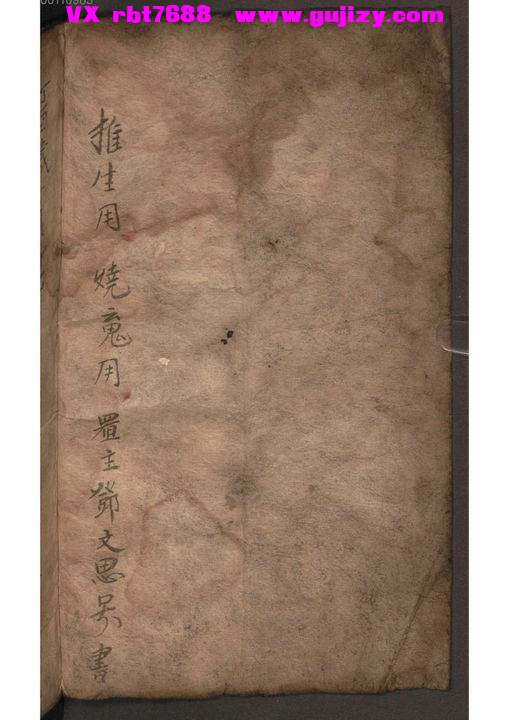 00110963
VX rbt7688 www.gujizy.com
推生用 燒鬼用 置主鄧文思吳書